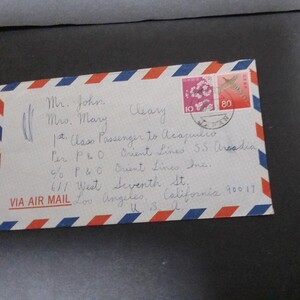 Mr. John
Mrs. Mary Cleary
1st Class Passenger to Acapulco
Per P & O Orient Lines SS Arcadia
c/o P & O Orient Lines Inc.
611 West Seventh St.
Los Angeles, California 90017
U. S. A.
VIA AIR MAIL
10
80